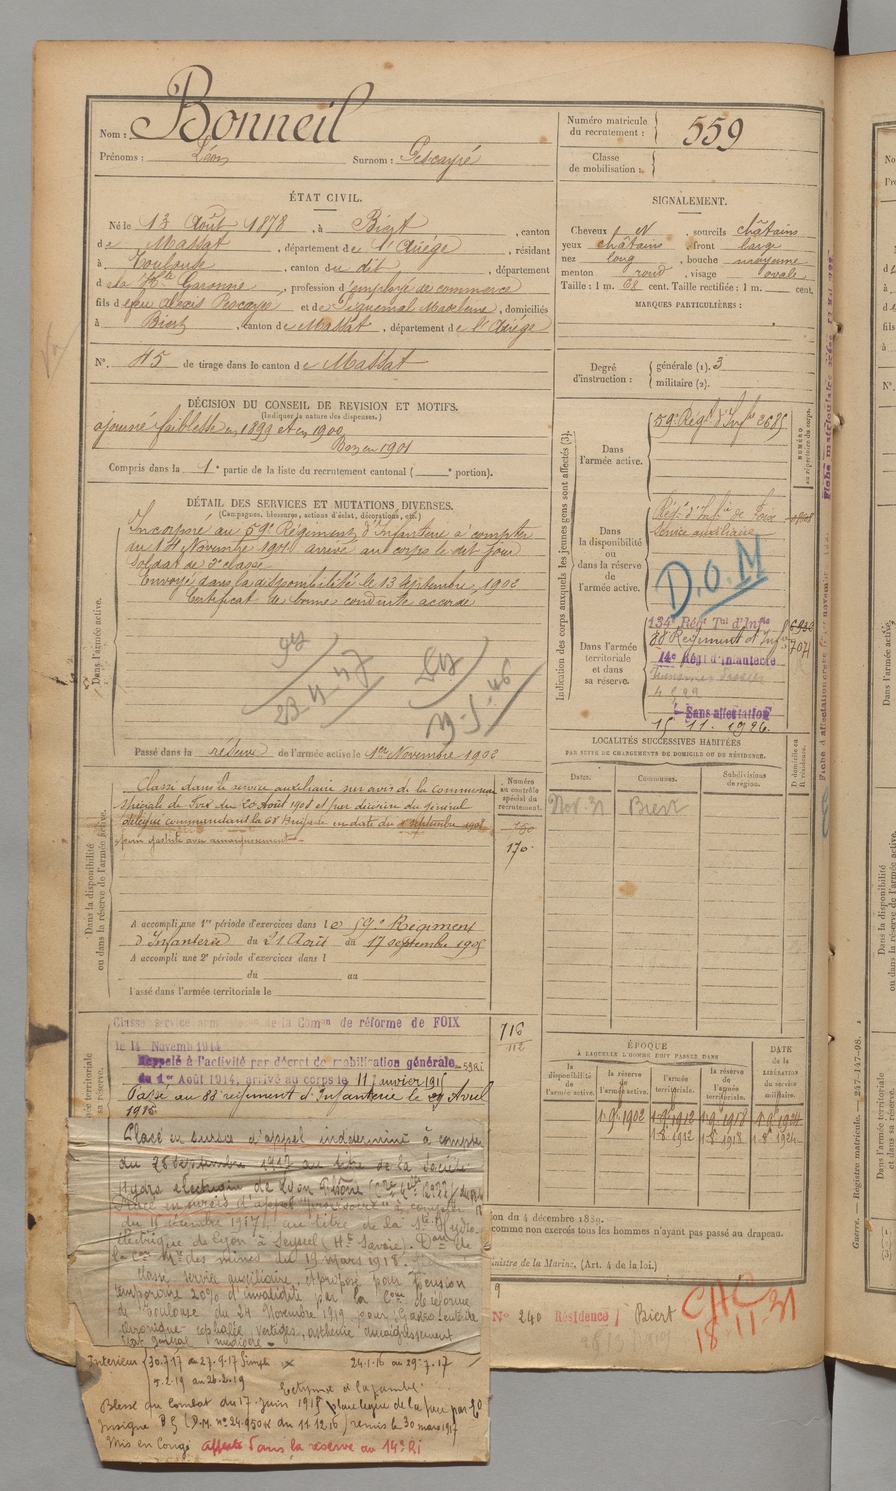 Nom : Bonneil
Prénoms : Léon Surnom : Pescayré
Numéro matricule du recrutement : 559
Classe de mobilisation :
ÉTAT CIVIL.
Né le 13 Août 1878, à Biert, canton
de Massat, département de l'Ariège, résidant
à Toulouse, canton du dit, département
d la Hte Garonne, profession d'employé de commerce
fils d feu Alexis Pescayré et de Piquemal Madeleine, domiciliés
à Biert, canton de Massat, département de l'Ariège
N°. 45 de tirage dans le canton de Massat
SIGNALEMENT.
Cheveux N, sourcils châtains
yeux châtains, front large
nez long, bouche moyenne
menton rond, visage ovale
Taille : 1 m. 68 cent. Taille rectifiée : 1 m. cent.
MARQUES PARTICULIÈRES :
Degré d'instruction : générale (1). 3
militaire (2).
DÉCISION DU CONSEIL DE REVISION ET MOTIFS.
(Indiquer la nature des dispenses.)
ajourné faiblesse en 1899 et en 1900
Bon en 1901
Compris dans la 1e partie de la liste du recrutement cantonal ( e portion).
DÉTAIL DES SERVICES ET MUTATIONS DIVERSES.
(Campagnes, blessures, actions d'éclat, décorations, etc.)
Dans l'armée active.
Incorporé au 59e Régiment d'Infanterie à compter
du 14 Novembre 1901 arrivé au corps le dit jour
Soldat de 2e classe
Envoyé dans la disponibilité le 13 Septembre 1902
Certificat de bonne conduite accordé
23-4-47
9-5-46
Passé dans la réserve de l'armée active le 1er Novembre 1902
Indication des corps auxquels les jeunes gens sont affectés (3).
NUMÉRO au répertoire du corps.
Dans l'armée active.
59e Régt d'Infie 2685
Dans la disponibilité ou dans la réserve de l'armée active.
Régt d'Infie de Foix
Service auxiliaire
D.O.M
Dans l'armée territoriale et dans sa réserve.
134e Régt Tal d'Infie
88 Régiment d'Infie
14e Régt d'Infanterie
Sans affectation
15 11. 1926.
LOCALITÉS SUCCESSIVES HABITÉES
PAR SUITE DE CHANGEMENTS DE DOMICILE OU DE RÉSIDENCE.
Dates. Communes. Subdivisions de région. D domicile ou R résidence.
Nov. 31 Biert
Dans la disponibilité ou dans la réserve de l'armée active.
Numéro au contrôle spécial du recrutement.
Classé dans le service auxiliaire sur avis de la Commission
spéciale de Foix du 20 Août 1908 et par décision du Général
délégué commandant la 68e Brigade en date du septembre 1908
pour gastrite avec amaigrissement
170
A accompli une 1re période d'exercices dans le 59e Régiment
d'Infanterie du 21 Août au 17 septembre 1905
A accompli une 2e période d'exercices dans l
du au
Passé dans l'armée territoriale le
Classé service de la Comon de réforme de FOIX
le 14 Novemb 1914
Rappelé à l'activité par décret de mobilisation générale 59 RI
du 1er Août 1914, arrivé au corps le 11 Janvier 1915
Passé au 88e régiment d'Infanterie le 29 Avril
1915
716
112
Placé en sursis d'appel indéterminé à compter
du 28 Septembre 1917 au titre de la Société
Hydro électrique de Lyon
Placé en sursis d'appel
du 11 décembre 1917 au titre de la Sté Hydro
électrique de Lyon à Seyssel (Hte Savoie).
des mines du 19 mars 1918.
Classé service auxiliaire, et proposé pour Pension
temporaire 20% d'invalidité par la Con de réforme
de Toulouse du 24 Novembre 1919 pour: Gastro Entérite
chronique - céphalée, vertiges, asthénie amaigrissement
état général médiocre
Intérieur 30.7.17 au 27.9.17 Simple 24.1.16 au 29.7.17
5.2.19 au 26.2.19
Ecthyma à la jambe.
Blessé au combat du 17 Juin 1915 plaie légère de la face par
Insigne B G (D.M. n° 24.950 K du 11 12 16) remis le 30 mars 1917
Mis en Congé affecté dans la réserve au 14e RI
ÉPOQUE
À LAQUELLE L'HOMME DOIT PASSER DANS
la disponibilité de l'armée active. la réserve de l'armée active. l'armée territoriale. la réserve de l'armée territoriale.
DATE de la LIBÉRATION du service militaire.
1.9.1902 1.9.1912 1.9.1918 1.9.1924
1.8.1912 1.8.1918 1.8.1924
ion du 4 décembre 1889.
comme non exercés tous les hommes n'ayant pas passé au drapeau.
inistre de la Marine, (Art. 4 de la loi.)
N° 240 Résidence Biert
18-11-31
Guerre. — Registre matricule. — 247-147-98.